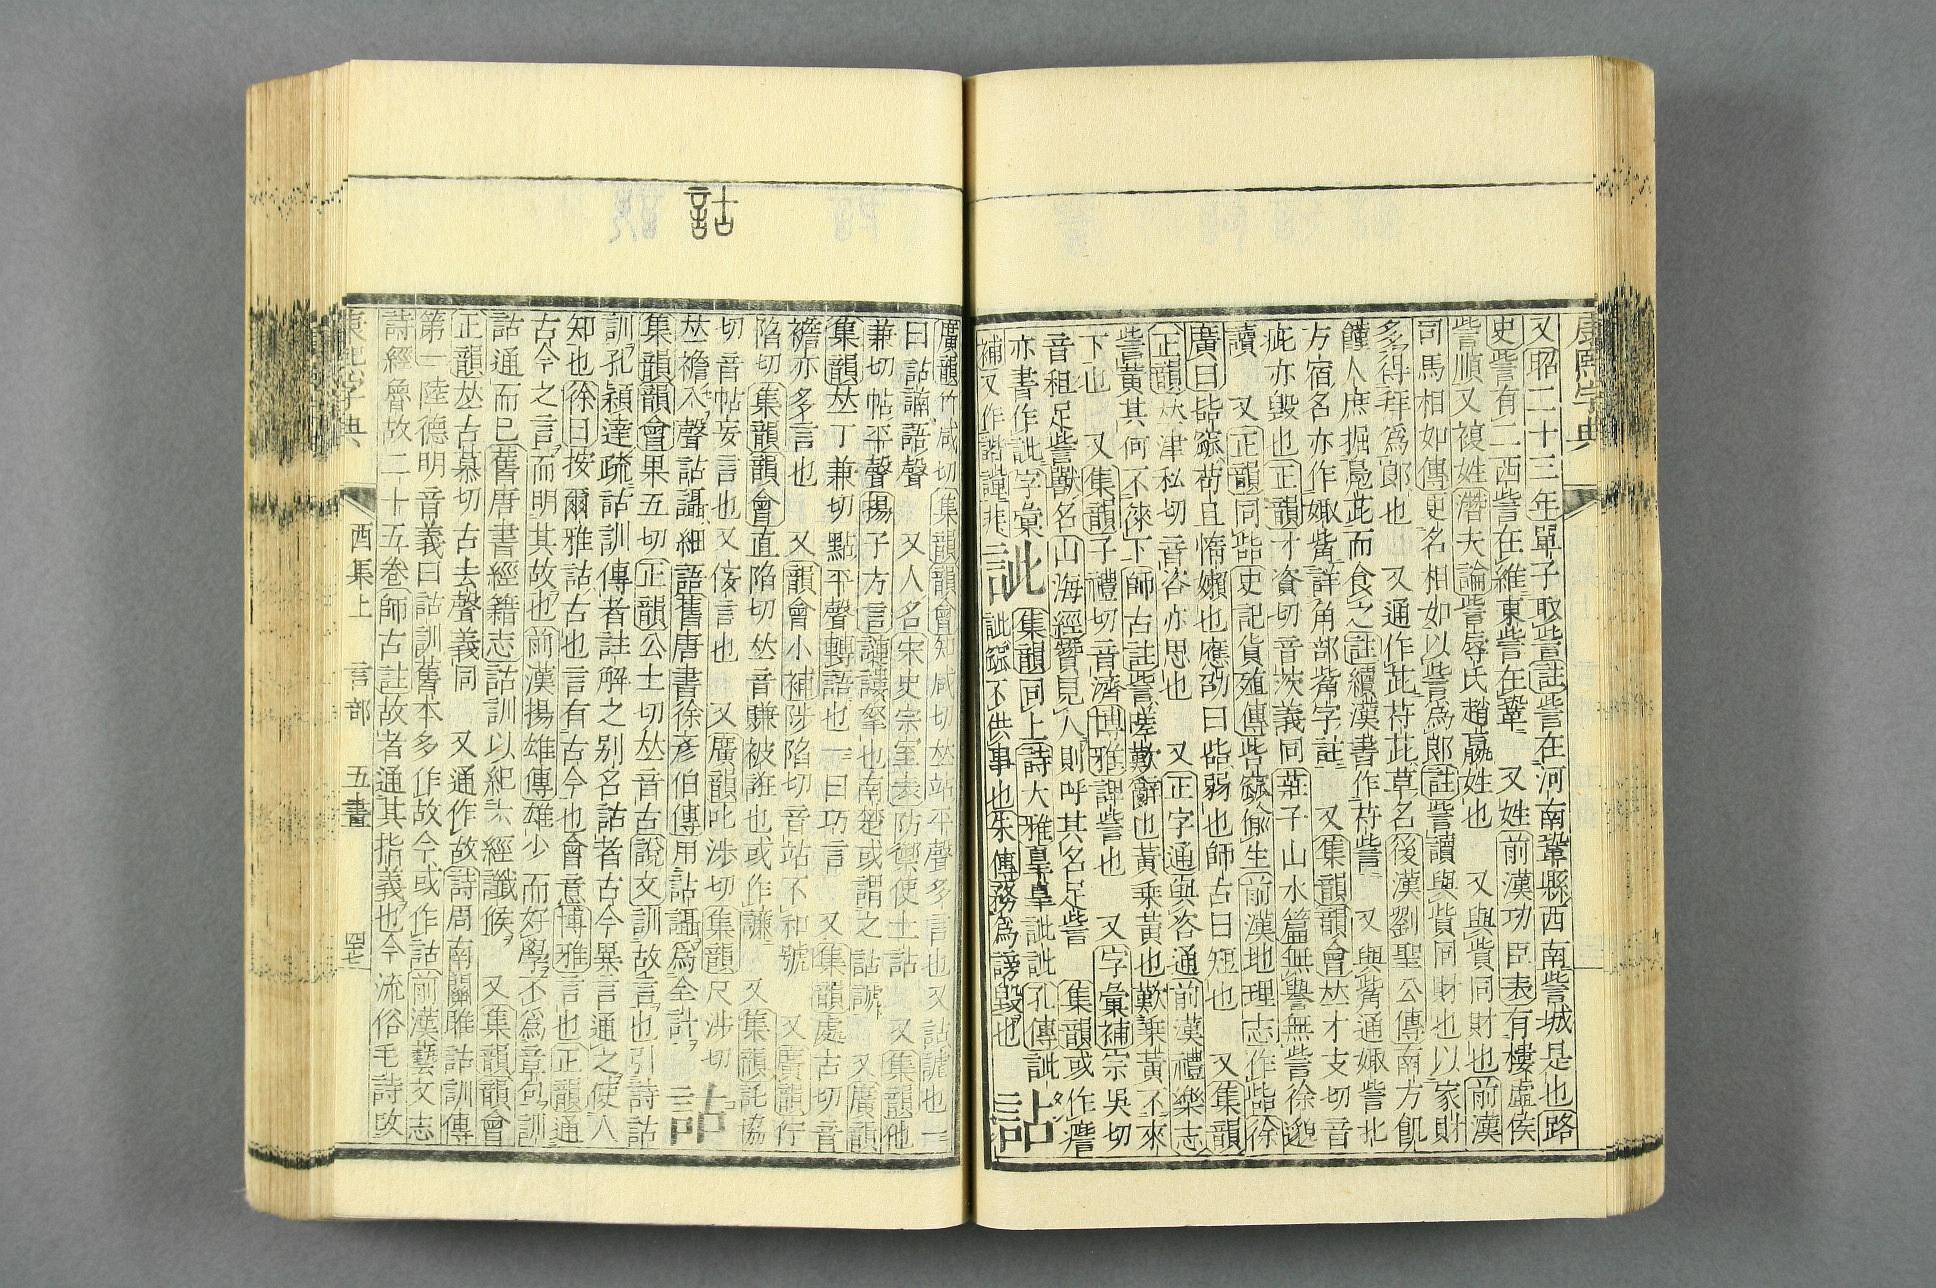 康熙字典
又昭二十三年單子取訾註訾在河南鞏縣西南訾城是也路
史訾有二西訾在維東訾在鞏 又姓前漢功臣表有樓虛侯
訾順又複姓潛夫論訾辱氏趙嬴姓也 又與貲同財也前漢
司馬相如傳更名相如以訾爲郎註訾讀與貲同財也以家財
多得拜爲郎也 又通作茈茈草名後漢劉聖公傳南方飢
饉人庶掘鳧茈而食之註續漢書作苻訾 又與觜通娵訾北
方宿名亦作娵觜詳角部觜字註 又集韻韻會𠀤才支切音
疵亦毀也正韻才資切音茨義同莊子山水篇無譽無訾徐邈
讀 又正韻同呰史記貨殖傳呰窳偷生前漢地理志作呰徐
廣曰呰窳苟且惰嬾也應劭曰呰弱也師古曰短也 又集韻
正韻𠀤津私切音咨亦思也 又正字通與咨通前漢禮樂志
訾黃其何不徠下師古註訾嗟歎辭也黃乘黃也歎乘黃不來
下也 又集韻子禮切音濟博雅謂訾也 又字彙補宗吳切
音租足訾獸名山海經贊見人則呼其名足訾 集韻或作䜕
亦書作訿字彙
訿 集韻同上詩大雅臯臯訿訿孔傳訿
訿窳不供事也朱傳務爲謗毀也
詀
廣韻竹咸切集韻韻會知咸切𠀤站平聲多言也又詀諵也一
曰詀諵語聲 又人名宋史宗室表防禦使士詀 又集韻他
兼切帖平聲揚子方言謰謱拏也南楚或謂之詀謕 又廣韻
集韻𠀤丁兼切點平聲轉語也一曰巧言 又集韻處占切音
襜亦多言也 又韻會小補陟陷切音站不和號 又廣韻佇
陷切集韻韻會直陷切𠀤音賺被誑也或作譧 又集韻託協
切音帖妄言也又佞言也 又廣韻叱涉切集韻尺涉切
𠀤襜入聲詀讘細語舊唐書徐彥伯傳用詀讘爲全計
詁
集韻韻會果五切正韻公土切𠀤音古說文訓故言也引詩詁
訓孔穎達疏詁訓傳者註解之別名詁者古今異言通之使人
知也徐曰按爾雅詁古也言有古今也會意博雅言也正韻通
古今之言而明其故也前漢揚雄傳雄少而好學不爲章句訓
詁通而已舊唐書經籍志詁訓以紀六經讖候 又集韻韻會
正韻𠀤古慕切古去聲義同 又通作故詩周南關雎詁訓傳
第一陸德明音義曰詁訓舊本多作故今或作詁前漢藝文志
詩經魯故二十五卷師古註故者通其指義也今流俗毛詩改
康熙字典 酉集上 言部 五畫